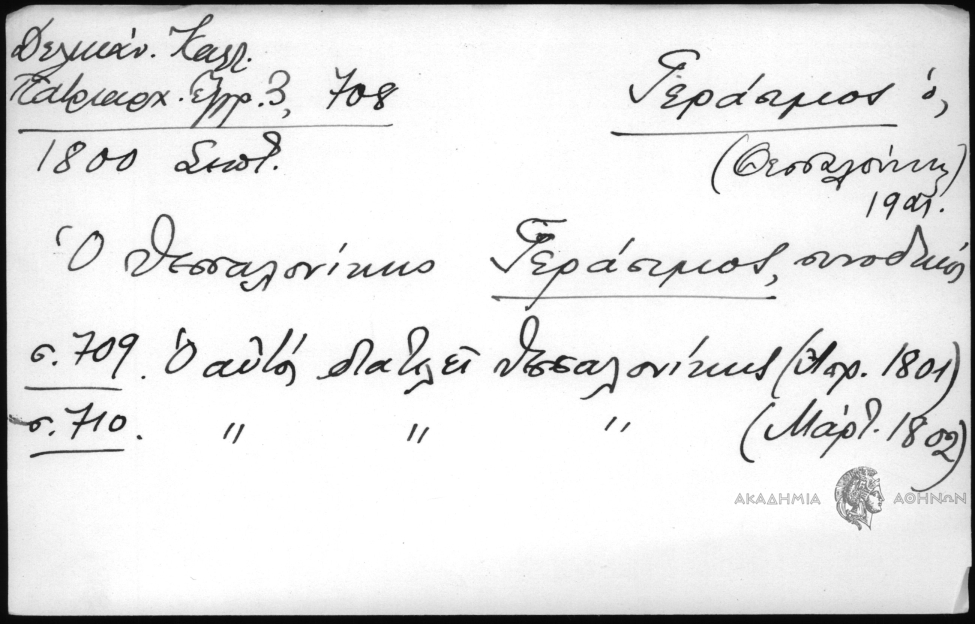 Δελικάν. Καλλ.
Πατριαρχ. Ἔγγρ. 3, 708
1800 Σεπτ.
Γεράσιμος ὁ,
(Θεσσαλονίκης)
19 αἰ.
Ὁ Θεσσαλονίκης Γεράσιμος, συνοδικός
σ. 709. Ὁ αὐτός διατελεῖ Θεσσαλονίκης (Ἀπρ. 1801)
σ. 710. " " " (Μάρτ. 1802)
ΑΚΑΔΗΜΙΑ ΑΘΗΝΩΝ